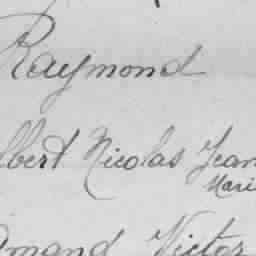 Raymond
lbert Nicolas Jean
Mari
mand Victor